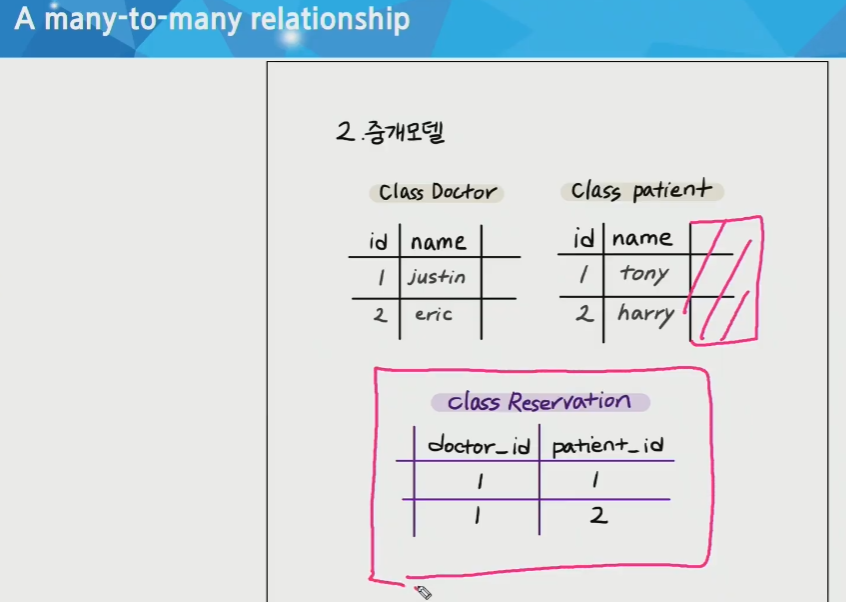 A many-to-many relationship
2.중개모델
Class Doctor
id name
1 justin
2 eric
Class patient
id name
1 tony
2 harry
Class Reservation
doctor_id patient_id
1 1
1 2